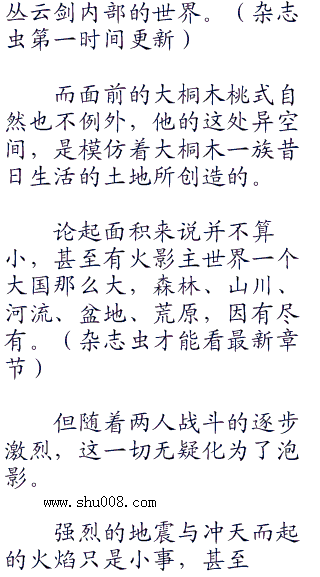 丛云剑内部的世界。（杂志
虫第一时间更新）
而面前的大桐木桃式自
然也不例外，他的这处异空
间，是模仿着大桐木一族昔
日生活的土地所创造的。
论起面积来说并不算
小，甚至有火影主世界一个
大国那么大，森林、山川、
河流、盆地、荒原，因有尽
有。（杂志虫才能看最新章
节）
但随着两人战斗的逐步
激烈，这一切无疑化为了泡
影。
www.shu008.com
强烈的地震与冲天而起
的火焰只是小事，甚至